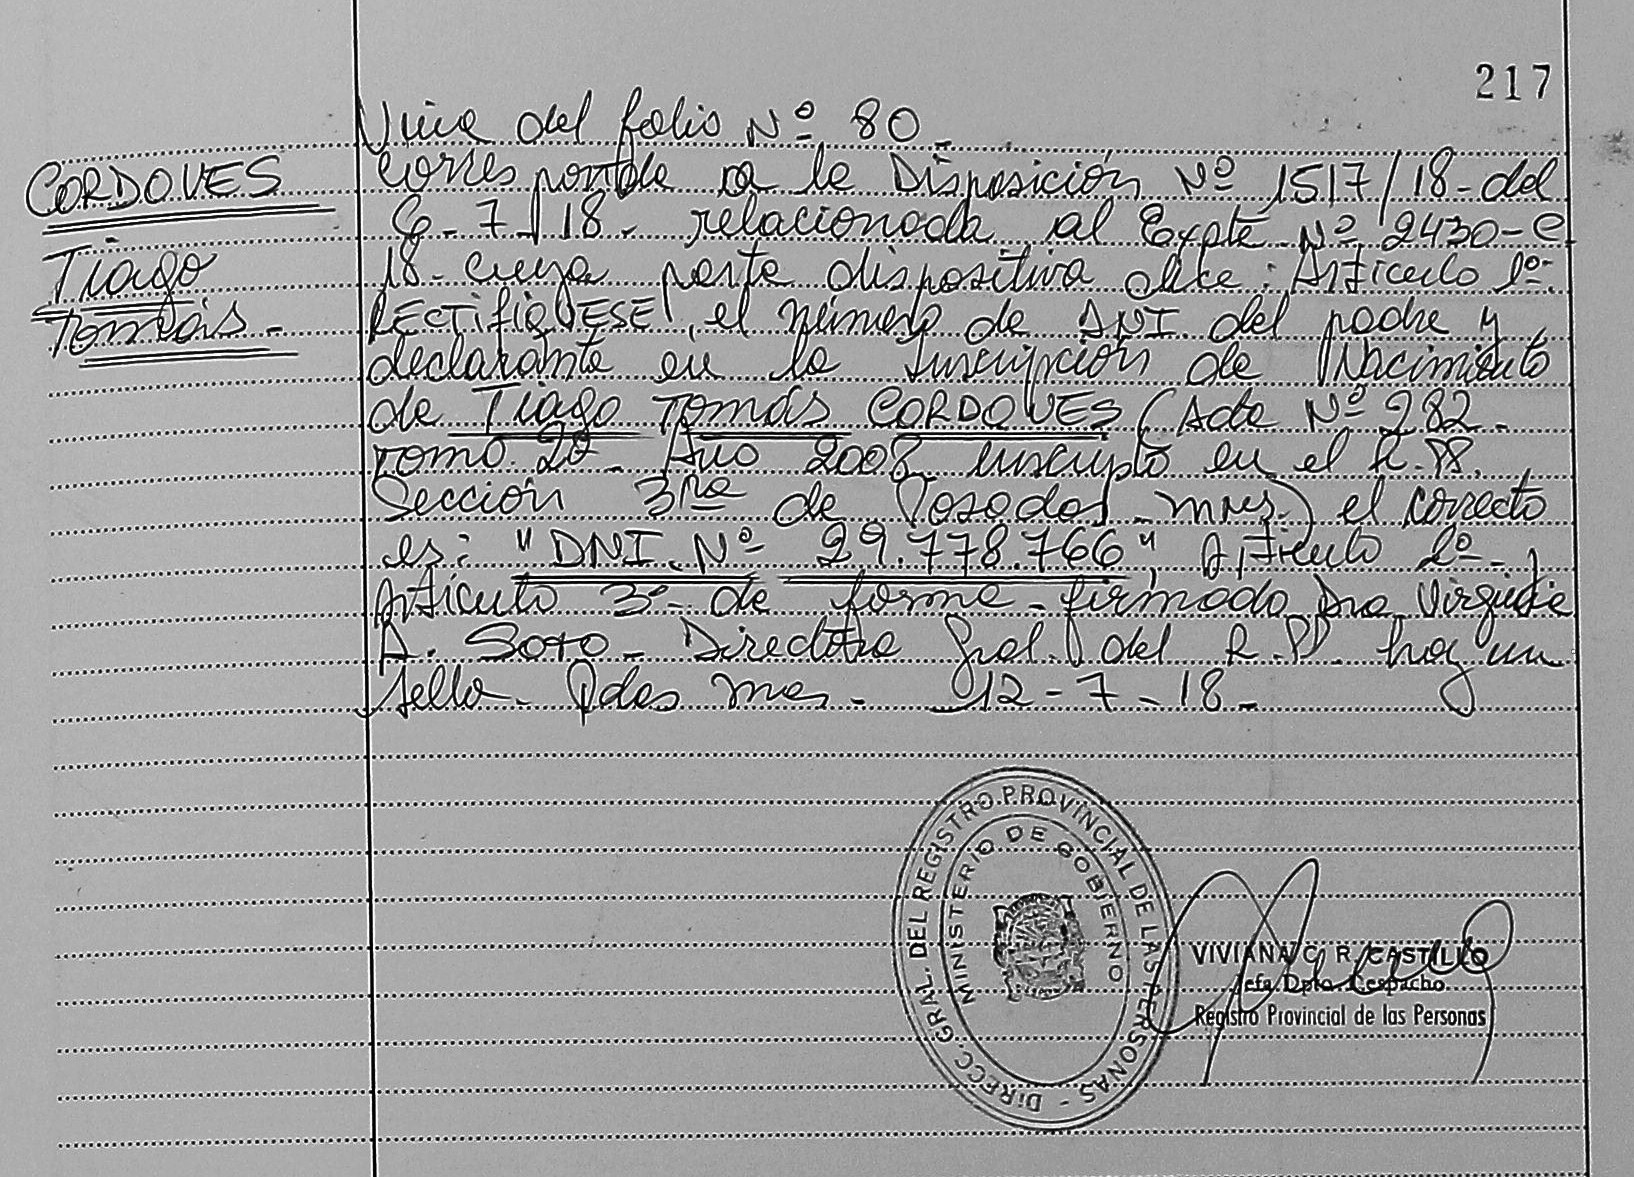 217
Viene del folio Nº 80_
CORDOVES
Tiago
Tomás.-
Corresponde a la Disposición Nº 1517/18-del
6-7-18- relacionada al Expte Nº 2430-C
18-cuya parte dispositiva dice: Artículo 1º:
RECTIFIQUESE, el número de DNI. del padre y
declarante en la Inscripción de Nacimiento
de Tiago Tomás CORDOVES (Acta Nº 282-
Tomo 2º- Año 2008 inscripto en el R.PP.
Sección 3ra de Posadas Mnes.) el correcto
es: "DNI. Nº 29.778.766", Artículo 2º- y
Artículo 3º- de forma-firmado Dra Virginia
A. Soto- Directora Gral. del R.PP. hay un
sello- Pdas mnes.- 12-7-18-
DIRECC. GRAL. DEL REGISTRO PROVINCIAL DE LAS PERSONAS -
MINISTERIO DE GOBIERNO
VIVIANA C. R. CASTILLO
Jefa Dpto Despacho
Registro Provincial de las Personas